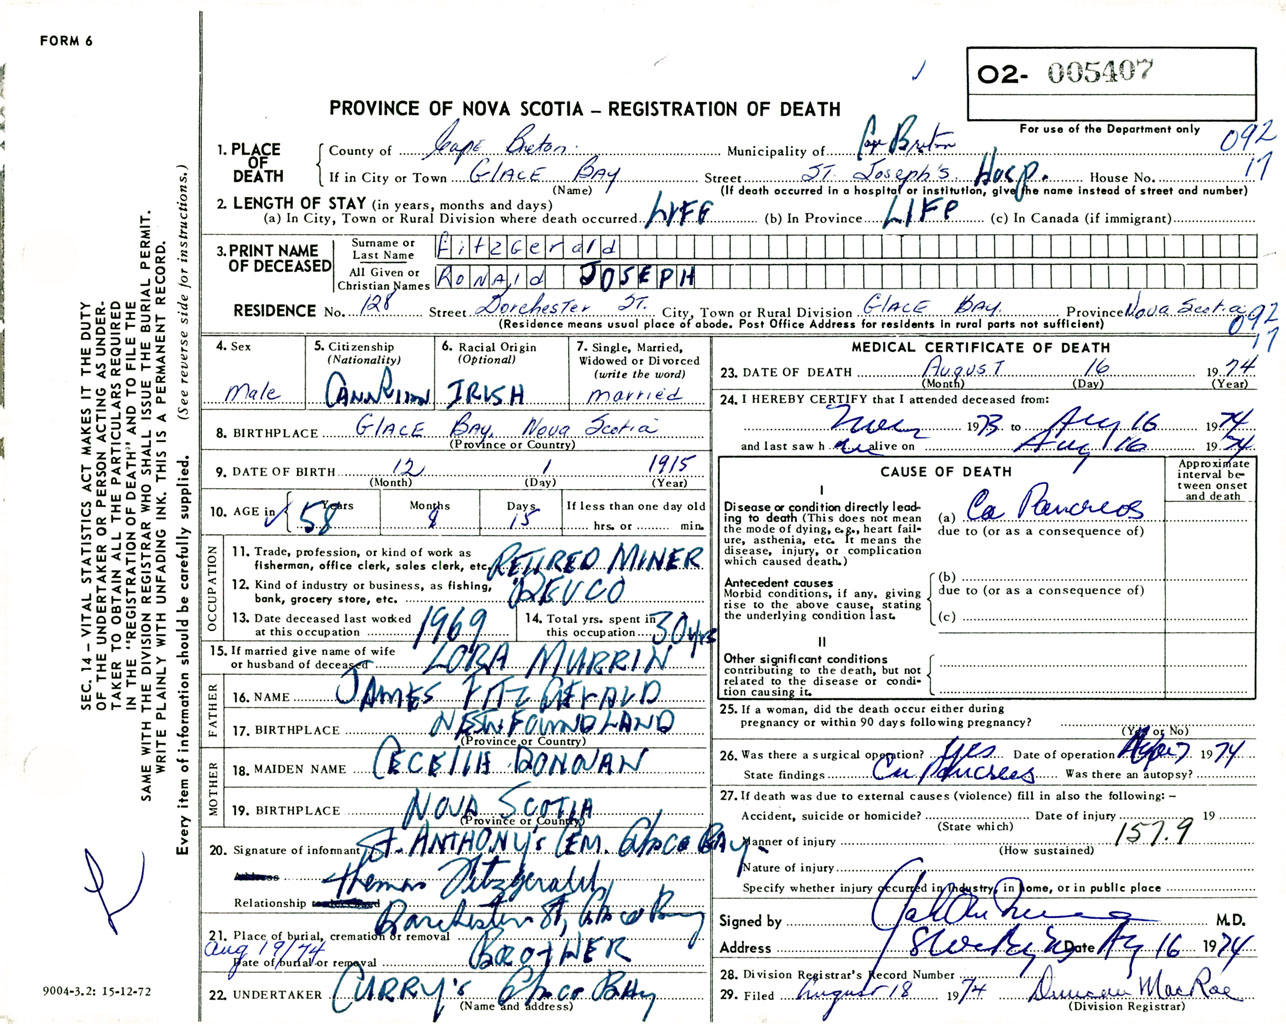 FORM 6
O2- 005407
PROVINCE OF NOVA SCOTIA – REGISTRATION OF DEATH
For use of the Department only
092
17
1. PLACE OF DEATH
County of Cape Breton Municipality of Cape Breton
If in City or Town GLACE BAY Street ST. Joseph's Hosp. House No.
(Name) (If death occurred in a hospital or institution, give the name instead of street and number)
2. LENGTH OF STAY (in years, months and days)
(a) In City, Town or Rural Division where death occurred LIFE (b) In Province LIFE (c) In Canada (if immigrant)
3. PRINT NAME OF DECEASED
Surname or Last Name FitzGerald
All Given or Christian Names RONAld JOSEPH
RESIDENCE No. 128 Street Dorchester ST. City, Town or Rural Division GLACE BAY. Province Nova Scotia
(Residence means usual place of abode. Post Office Address for residents in rural parts not sufficient)
092
17
4. Sex
Male
5. Citizenship
(Nationality)
CANADIAN
6. Racial Origin
(Optional)
IRISH
7. Single, Married, Widowed or Divorced
(write the word)
married
8. BIRTHPLACE GLACE BAY, Nova Scotia
(Province or Country)
9. DATE OF BIRTH 12 1 1915
(Month) (Day) (Year)
10. AGE in Years 58 Months 8 Days 15 If less than one day old
hrs. or min.
OCCUPATION
11. Trade, profession, or kind of work as fisherman, office clerk, sales clerk, etc. RETIRED MINER
12. Kind of industry or business, as fishing, bank, grocery store, etc. DEVCO
13. Date deceased last worked at this occupation 1969
14. Total yrs. spent in this occupation 30 yrs
15. If married give name of wife or husband of deceased LORA MURRIN
FATHER
16. NAME JAMES FITZGERALD
17. BIRTHPLACE NEWFOUNDLAND
(Province or Country)
MOTHER
18. MAIDEN NAME CECELIA DONOVAN
19. BIRTHPLACE NOVA SCOTIA
(Province or Country)
20. Signature of informant St. ANTHONY'S CEM. Glace BAY.
Address Thomas Fitzgerald
Relationship Dorchester St, Glace Bay
21. Place of burial, cremation or removal BROTHER
Aug 19/74
Date of burial or removal
22. UNDERTAKER CURRY'S Glace BAY
(Name and address)
MEDICAL CERTIFICATE OF DEATH
23. DATE OF DEATH August 16 1974
(Month) (Day) (Year)
24. I HEREBY CERTIFY that I attended deceased from:
1973 to Aug 16 1974
and last saw h im alive on Aug 16 1974
CAUSE OF DEATH
Approximate interval between onset and death
I
Disease or condition directly leading to death (This does not mean the mode of dying, e.g., heart failure, asthenia, etc. It means the disease, injury, or complication which caused death.)
(a) Ca Pancreas
due to (or as a consequence of)
Antecedent causes
Morbid conditions, if any, giving rise to the above cause, stating the underlying condition last.
(b)
due to (or as a consequence of)
(c)
II
Other significant conditions
contributing to the death, but not related to the disease or condition causing it.
25. If a woman, did the death occur either during pregnancy or within 90 days following pregnancy?
(Yes or No)
26. Was there a surgical operation? Yes Date of operation 1974
State findings Ca Pancreas Was there an autopsy?
27. If death was due to external causes (violence) fill in also the following: –
Accident, suicide or homicide? Date of injury 19
(State which)
Manner of injury 157.9
(How sustained)
Nature of injury
Specify whether injury occurred in industry, in home, or in public place
Signed by M.D.
Address Date Aug 16 1974
28. Division Registrar's Record Number
29. Filed August 18 1974 Duncan MacRae
(Division Registrar)
SEC. 14 – VITAL STATISTICS ACT MAKES IT THE DUTY
OF THE UNDERTAKER OR PERSON ACTING AS UNDER-
TAKER TO OBTAIN ALL THE PARTICULARS REQUIRED
IN THE "REGISTRATION OF DEATH" AND TO FILE THE
SAME WITH THE DIVISION REGISTRAR WHO SHALL ISSUE THE BURIAL PERMIT.
WRITE PLAINLY WITH UNFADING INK. THIS IS A PERMANENT RECORD.
Every item of information should be carefully supplied. (See reverse side for instructions.)
9004-3.2: 15-12-72